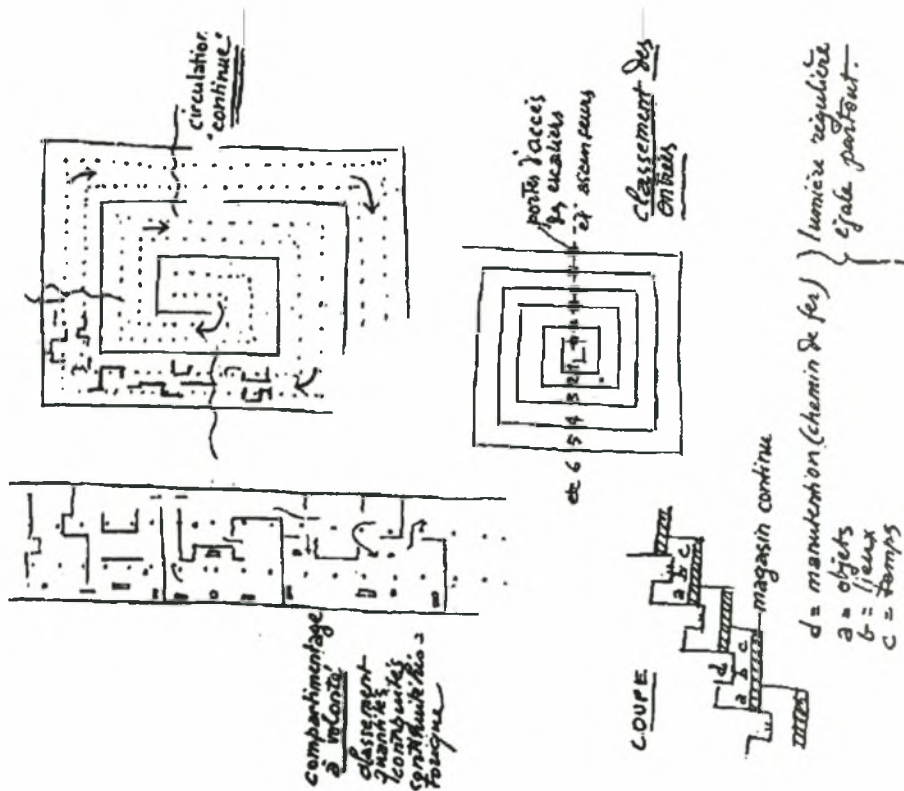 circulation
continue.
compartimentage
à volonté
classement
quantités
continuité his-
torique
portes d'accès
escaliers
et ascenseurs
classement des
entrées
etc 6 5 4 3 2 1
COUPE
a b c
a d b c
magasin continu
d = manutention (chemin de fer)
a = objets
b = lieux
c = temps
lumière régulière
égale partout.